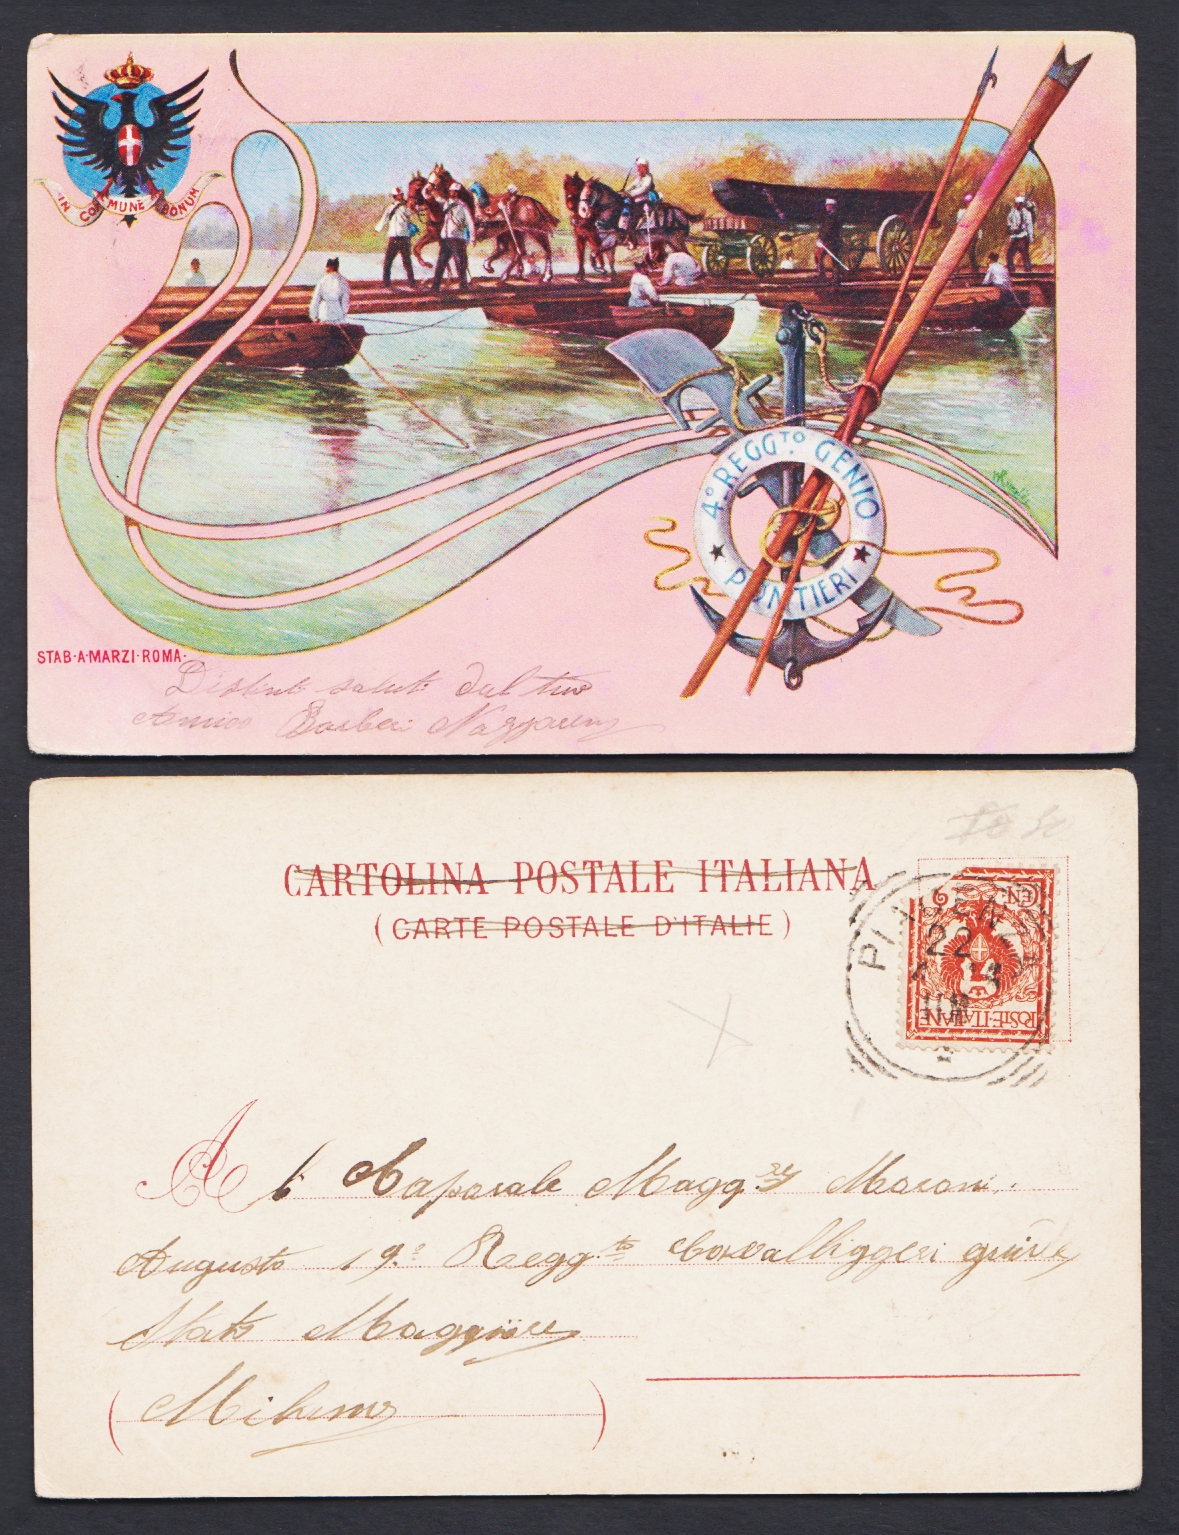 IN COMMUNE BONUM
4° REGG.TO GENIO
PONTIERI
STAB·A·MARZI·ROMA·
Distinti saluti dal tuo
Amico Barberi Nazzareno
CARTOLINA POSTALE ITALIANA
(CARTE POSTALE D'ITALIE)
CEN. 2
POSTE ITALIANE
PIACENZA
22
A
Al Caporale Magg.re Marani
Augusto 19.° Regg.to Cavalliggeri guide
Stato Maggiore
(Milano)